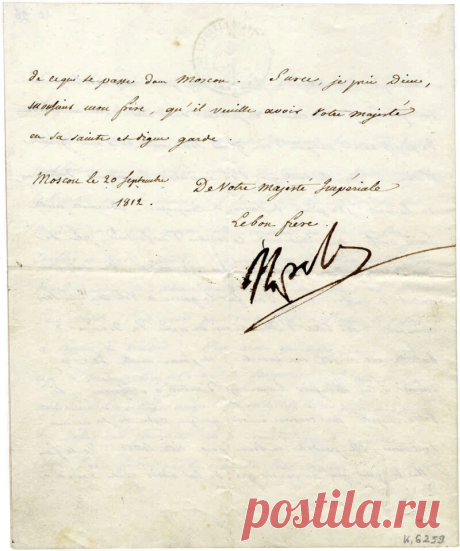 de ce qui se passe dans Moscou. Surce, je prie Dieu,
Monsieur mon frère, qu'il veuille avoir Votre Majesté
en sa sainte et digne garde.
Moscou le 20 Septembre
1812.
De Votre Majesté Impériale
Le bon frère
Napole
K,6259
postila.ru